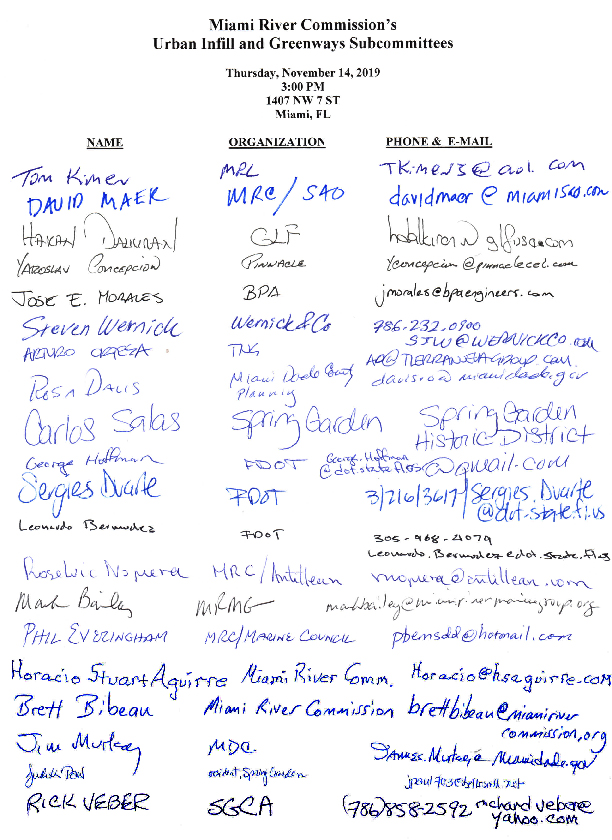 Miami River Commission's
Urban Infill and Greenways Subcommittees
Thursday, November 14, 2019
3:00 PM
1407 NW 7 ST
Miami, FL
NAME ORGANIZATION PHONE & E-MAIL
Tom Kimen MRC TKimen3@aol.com
DAVID MAER MRC/SAO davidmaer@miamisao.com
HAKAN GLF
YAROSLAV CONCEPCION PINNACLE yconcepcion@pinnaclecel.com
JOSE E. MORALES BPA jmorales@bpaengineers.com
Steven Wernick Wernick & Co 786.232.0900
SJW@WERNICKCO.COM
ARTURO TNG
Rosa Davis Miami Dade County davisro@miamidade.gov
Planning
Carlos Salas Spring Garden Spring Garden
Historic District
George Hoffman FDOT George.Hoffman @gmail.com
@dot.state.fl.us
Sergies Duarte FDOT Sergies.Duarte
@dot.state.fl.us
Leonardo Bermudez FDOT 305-968-4079
Leonardo.Bermudez@dot.state.fl.us
Roselvic Noguera MRC/Antillean rnoguera@antillean.com
Mark Bailey MRMG markbailey@miamirivermarinegroup.org
PHIL EVERINGHAM MRC/MARINE COUNCIL pbemsdd@hotmail.com
Horacio Stuart Aguirre Miami River Comm. Horacio@hsaguirre.com
Brett Bibeau Miami River Commission brettbibeau@miamiriver
commission.org
Jim Murley MDC
resident, Spring Garden
RICK VEBER SGCA (786)858-2592 richard veber@
yahoo.com